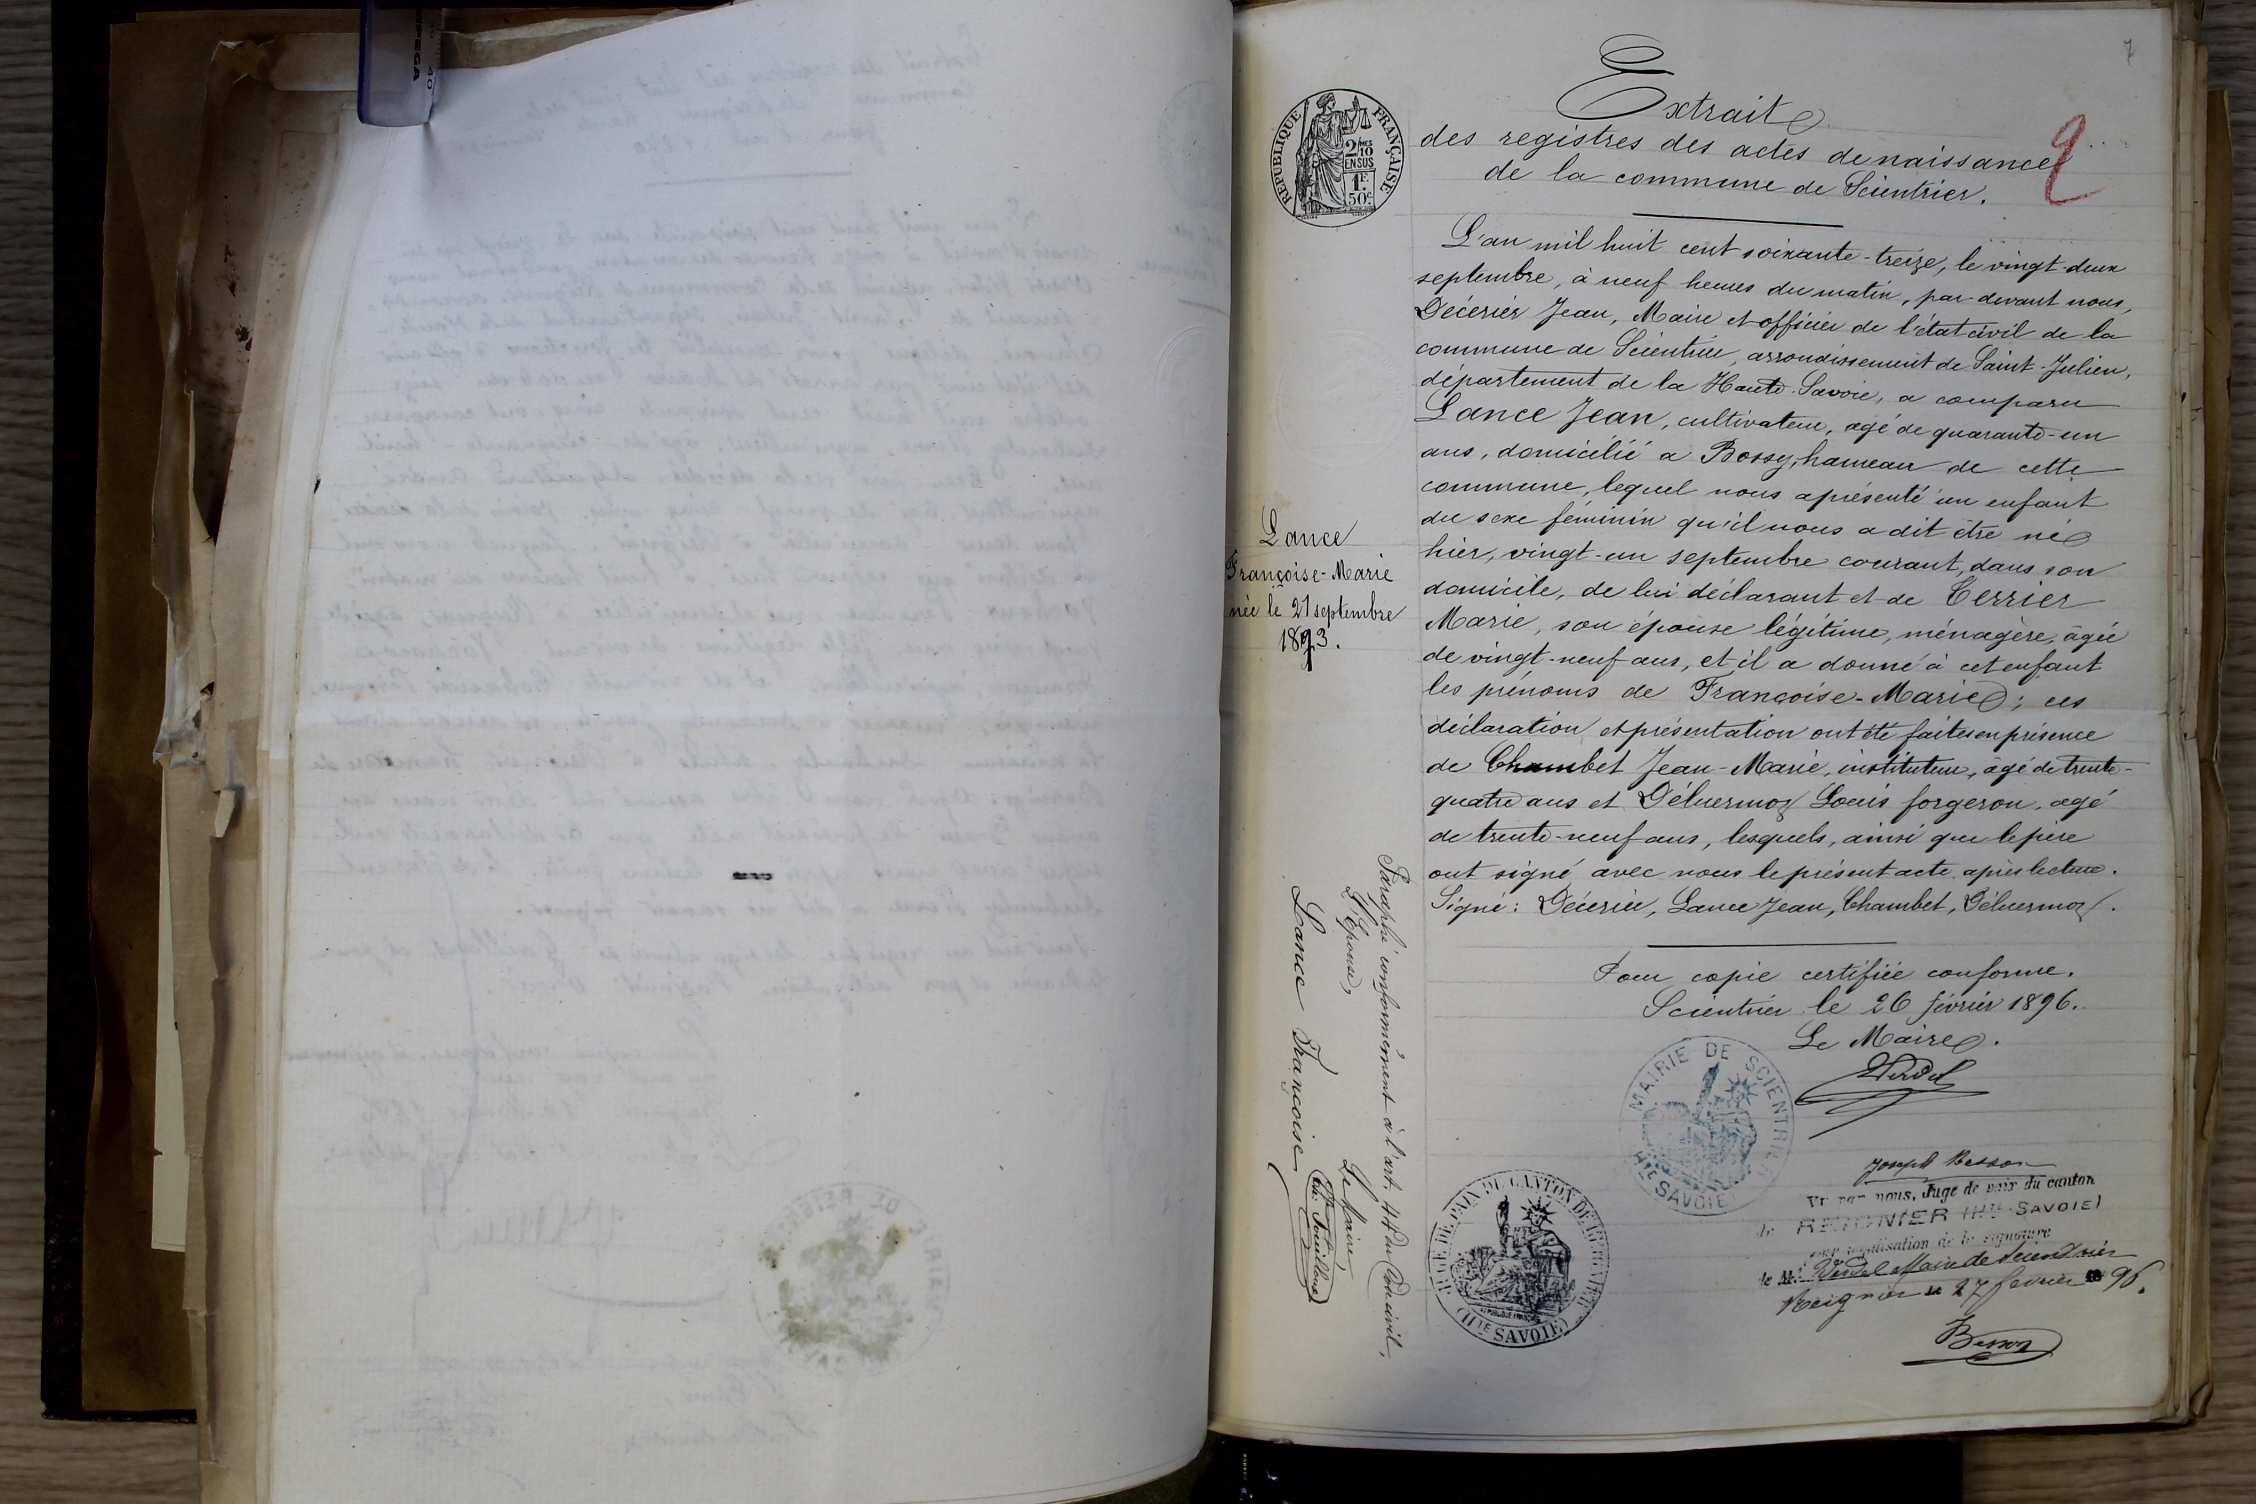 7
Extrait
des registres des actes de naissance
de la commune de Scientrier.
2
RÉPUBLIQUE FRANÇAISE
2/10 MES
EN SUS
1F
50c
L'an mil huit cent soixante-treize, le vingt-deux
septembre, à neuf heures du matin, par devant nous,
Décérier Jean, Maire et officier de l'état civil de la
commune de Scientrier, arrondissement de Saint-Julien,
département de la Haute-Savoie, a comparu
Lance Jean, cultivateur, agé de quarante-un
ans, domicilié a Bossy, hameau de cette
commune, lequel nous a présenté un enfant
du sexe féminin qu'il nous a dit être né
hier, vingt-un septembre courant, dans son
domicile, de lui déclarant et de Terrier
Marie, son épouse légitime, ménagère, âgée
de vingt-neuf ans, et il a donné à cet enfant
les prénoms de Françoise-Marie; ces
déclaration et présentation ont été faites en présence
de Chambet Jean-Marie, instituteur, âgé de trente-
quatre ans et Déluermoz Louis forgeron, agé
de trente-neuf ans, lesquels, ainsi que le père
ont signé avec nous le présent acte après lecture.
Signé: Décérier, Lance Jean, Chambet, Déluermoz.
Lance
Françoise-Marie
née le 21 septembre
1873.
Pour copie certifiée conforme.
Scientrier le 26 février 1896.
Le Maire.
Verdel
MAIRIE DE SCIENTRIER
HTE SAVOIE
Joseph Besson
Vu par nous, Juge de paix du canton
de REIGNIER (HTE-SAVOIE)
pour légalisation de la signature
de M. Verdel Maire de Scientrier
Reignier le 27 février 96.
Besson
DE PAIX DU CANTON DE REIGNIER
(HTE SAVOIE)
Paraphé conformément à l'art. 44 du Code civil,
L'Epouse, Le Maire
Lance Françoise